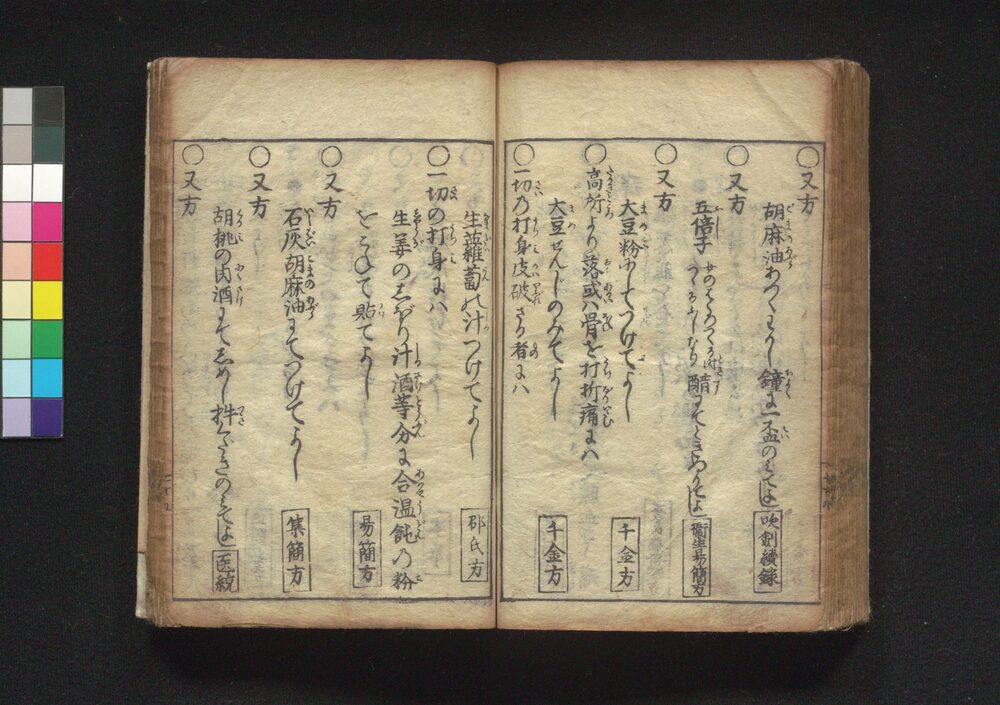 ○又方
胡麻油あつくわかし鐘に一盃のみてよし 吹剣続録
○又方
五倍子 醋にてときぬりてよし 衛生易簡方
○又方
大豆粉にしてつけてよし 千金方
○高所より落或ハ骨を打折痛にハ
大豆せんじのみてよし 千金方
○一切の打身皮破さる者にハ
生蘿蔔の汁つけてよし 邵氏方
○一切の打身にハ
生姜のしぼり汁酒等分に合温飩の粉
をこねて貼てよし 易簡方
○又方
石灰胡麻油にてつけてよし 集簡方
○又方
胡桃の肉酒にてしめし くだきのみてよし 医統